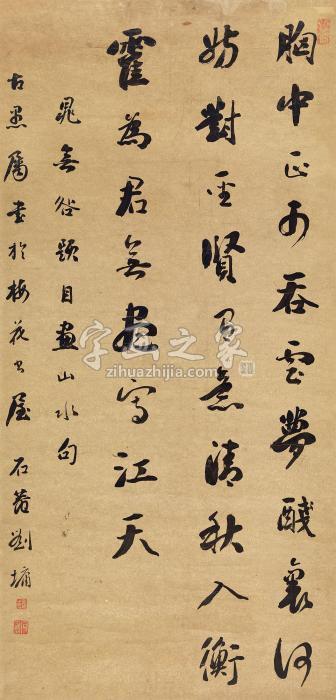 胸中正可吞雲夢醆裏何
妨對聖賢有意清秋入衡
霍為君無盡寫江天
晁無咎題自畫山水句
古愚屬書於梅花書屋 石菴劉墉
字画之家
zihuazhijia.com